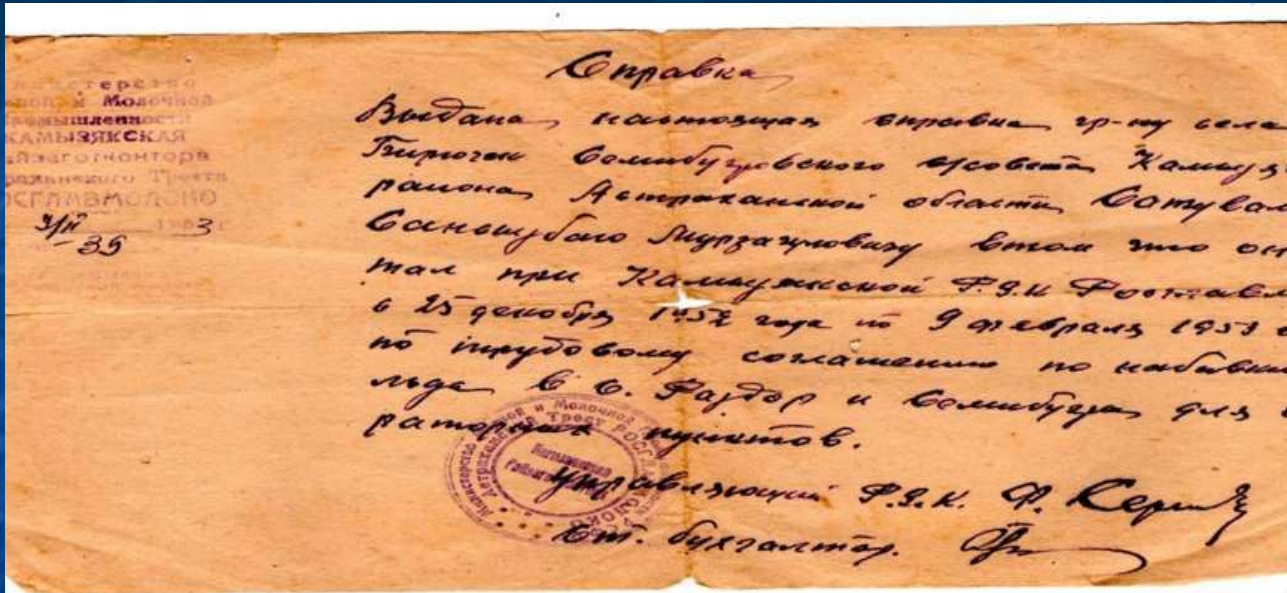 Министерство
Мясной и Молочной
Промышленности
КАМЫЗЯКСКАЯ
Райзаготконтора
Астраханского Треста
РОСГЛАВМОЛОКО
3/II 1953 г
35
Справка
Выдана настоящая справка гр-ну села
Бирючек Семибугровского с/совета Камызя
района Астраханской области
Мурзагуловичу втом что он
тал при Камызякской Р.З.К Росглавм
с 25 декабря 1952 года по 9 февраля 1953
по трудовому соглашению по набивки
льда в с. Раздор и Семибугры для
раторных пунктов.
Управляющий Р.З.К. Ф.
Ст. бухгалтер.
Министерство Мясной и Молочной
Астраханский Трест РОСГЛАВМОЛОКО